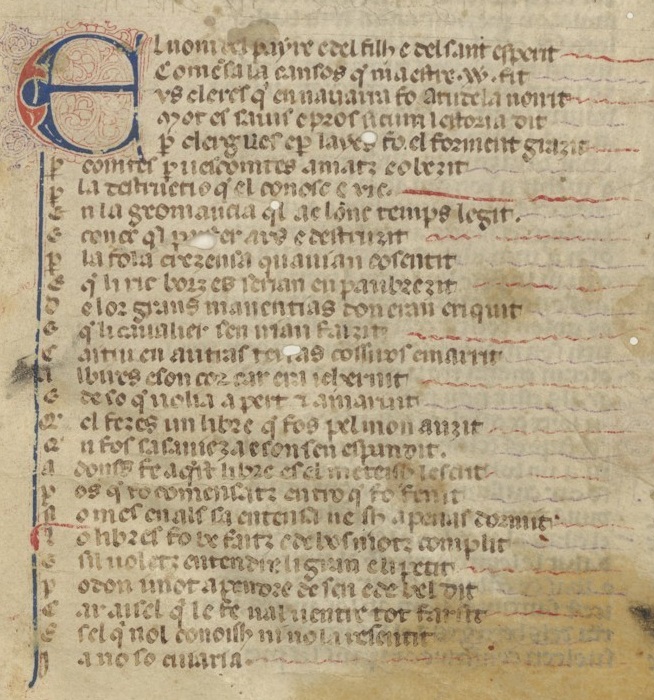 El nom del payre e del filh e del sant esperit
Comēsa la cansos q̄ maestre .W. fit
Us clercs q̄ en navarra fo a tudela noirit
Mot es savis e pros si cum lestoria dit
p̄ clergues e p̄ laycs fo el forment grazit
p̄ comtes p̄ vescomtes amatz e obezit
p̄ la destructio q̄ el conosc e vic
E n la geomancia q̄l ac lōnc temps legit.
E conoc q̄l pays er ars e destruzit
p̄ la fola crezensa qu avian cosentit
E q̄ li ric borzes serian enpaubrezit
D e lor grans manentias don eran eriquit
E q̄ li cavalier sen irian faizit
C aitiu en autras terras cossiros e marrit
A lbires e son cor car era
E de so q̄ volia apert amarvit
Q el fezes un libre q̄ fos pel mon auzit
Q n fos sa savieza e son sen espandit.
A doncs fe aq̄st libre es el meteish lescrit
p os q̄ fo comensatz entro q̄ fo fenit
N o mes en als sa entensa neish a penas dormit
L o libres fo be faitz e de bos motz complit
E sil voletz entendre li gran e li petit
p odon i mot apendre de sen e de bel dit
C ar aisel q̄ le fe nal ventre tot farsit
E sel q̄ nol conoish ni nol a resentit
J a no so cujaria.